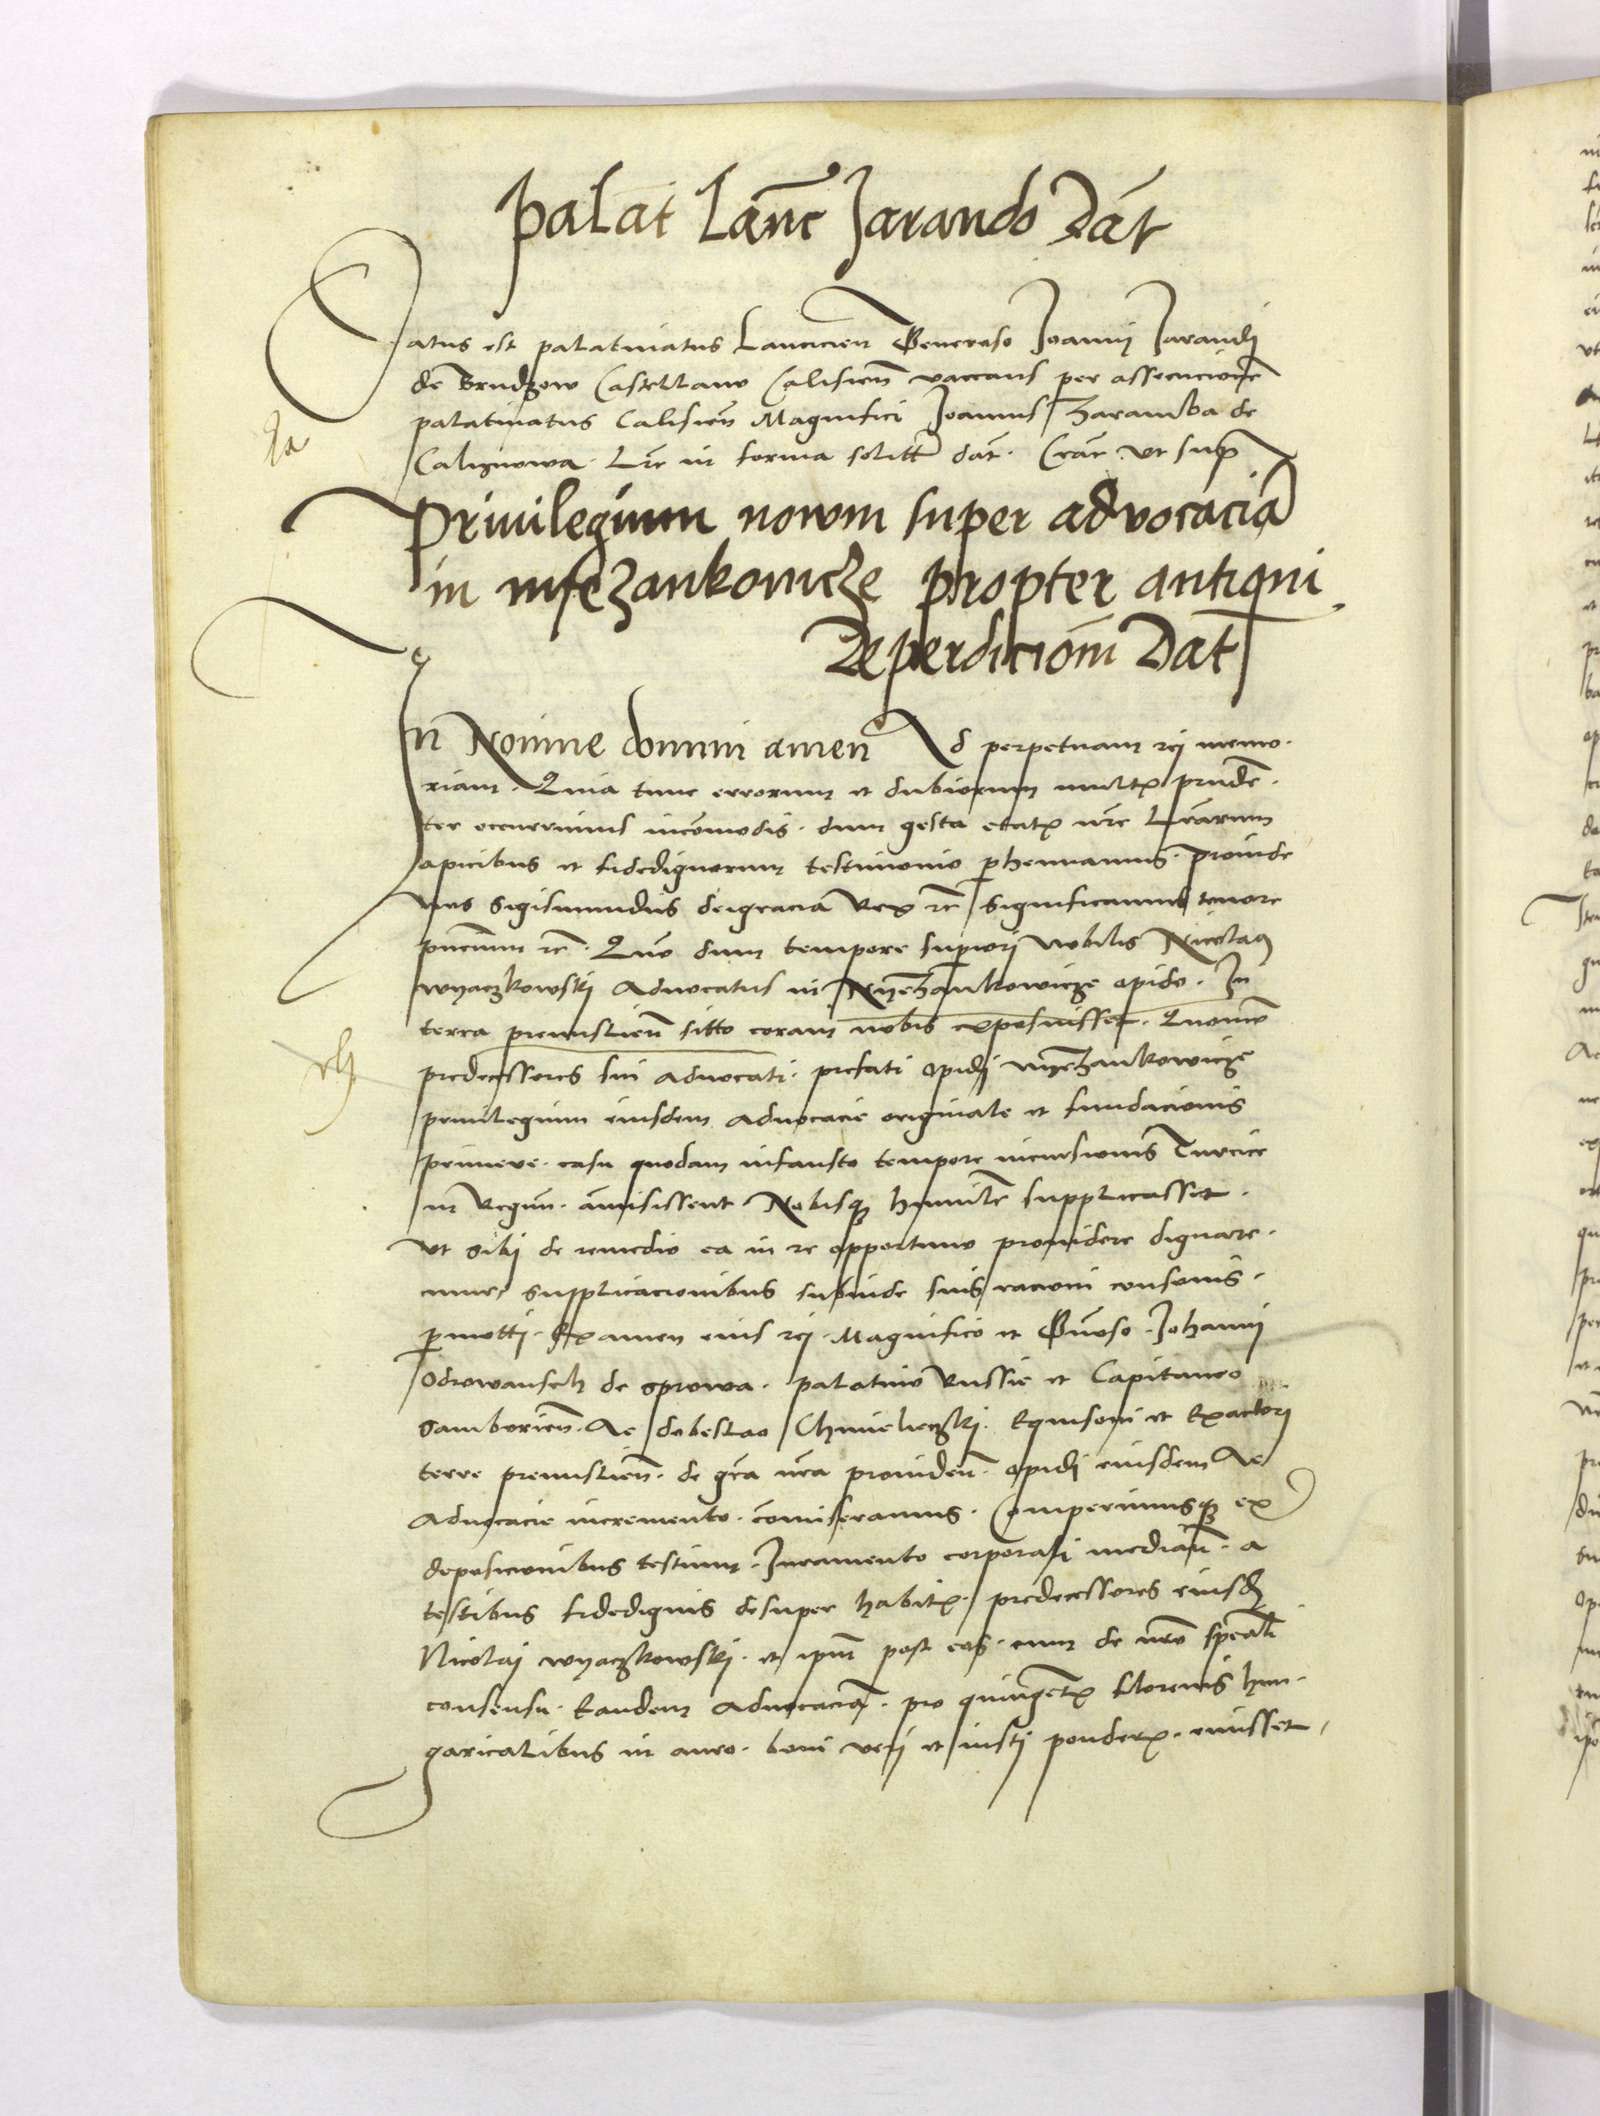 Palat Lanc Jarando Dat
Datus est palatinatus Lancicien Generoso Joannj Jarandj
de Brudzow Castellano Calisien vaccans per assecucione
palatinatus Calisien Magnifici Joannis Zaramba de
Calignowa. Lre in forma solitt dat. Crac. ut sup
Privilegium novum super advocacia
in Nyezankowicze propter antiqui
Deperdicionem Dat
In Nomine domini amen Ad perpetuam rej memo-
riam. Quia tunc errorum et dubiorum multꝝ prude-
ter occurrimus incomodis. dum gesta etatꝝ nre Lrarum
apicibus et fidedignorum testimonio phennamus. proinde
nos Sigismundus deigracia Rex rc Significamus tenore
pncium rc. Quo dum tempore superiorj nobilis Nicolaus
wyaczkowskj Advocatus in Nyezankowicze opido. In
terra premislien sitto coram nobis exposuisset. Quomo
predecessores sui advocati. prefati opidj nyezankowicze
privilegium eiusdem advocacie originale et fundacionis
primeve. casu quodam infausto tempore incursionis Turcice
in Regnum. amisissent Nobisqꝫ humile supplicasset.
Ut sibj de remedio ea in re opportuno providere dignare-
mur. supplicacionibus subinde suis racioni consonis.
pmotti. Examen eius rej. Magnifico et Gnoso. Johannj
Odrowansch de Sprowa. palatino Russie et Capitaneo
Samborien. Ac dobeslao Chmieleczskj. Equisoni et Exactorj
terre premislien. de gra nra providen. opidj eiusdem Ac
Advocacie incremento. comiseramus. Comperimusqꝫ ex
deposicionibus testium. Juramento corporali median. a
testibus fidedignis desuper habitꝝ. predecessores eiusd
Nicolaj wyaczkowskj. et ipm post eos. cum de nro speali
consensu. Eandem advocacia. pro quingetꝝ florenis hun-
garicalibus in auro. boni verj et iustj ponderꝝ. emisset